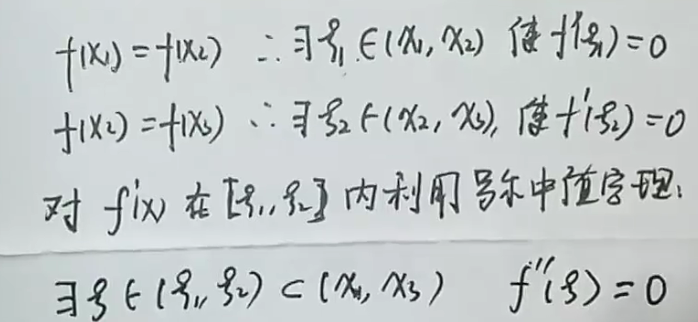 f(x₁)=f(x₂) ∴∃ξ₁∈(x₁,x₂) 使f'(ξ₁)=0
f(x₂)=f(x₃) ∴∃ξ₂∈(x₂,x₃), 使f'(ξ₂)=0
对 f'(x) 在[ξ₁,ξ₂]内利用罗尔中值定理:
∃ξ∈(ξ₁,ξ₂)⊂(x₁,x₃) f''(ξ)=0